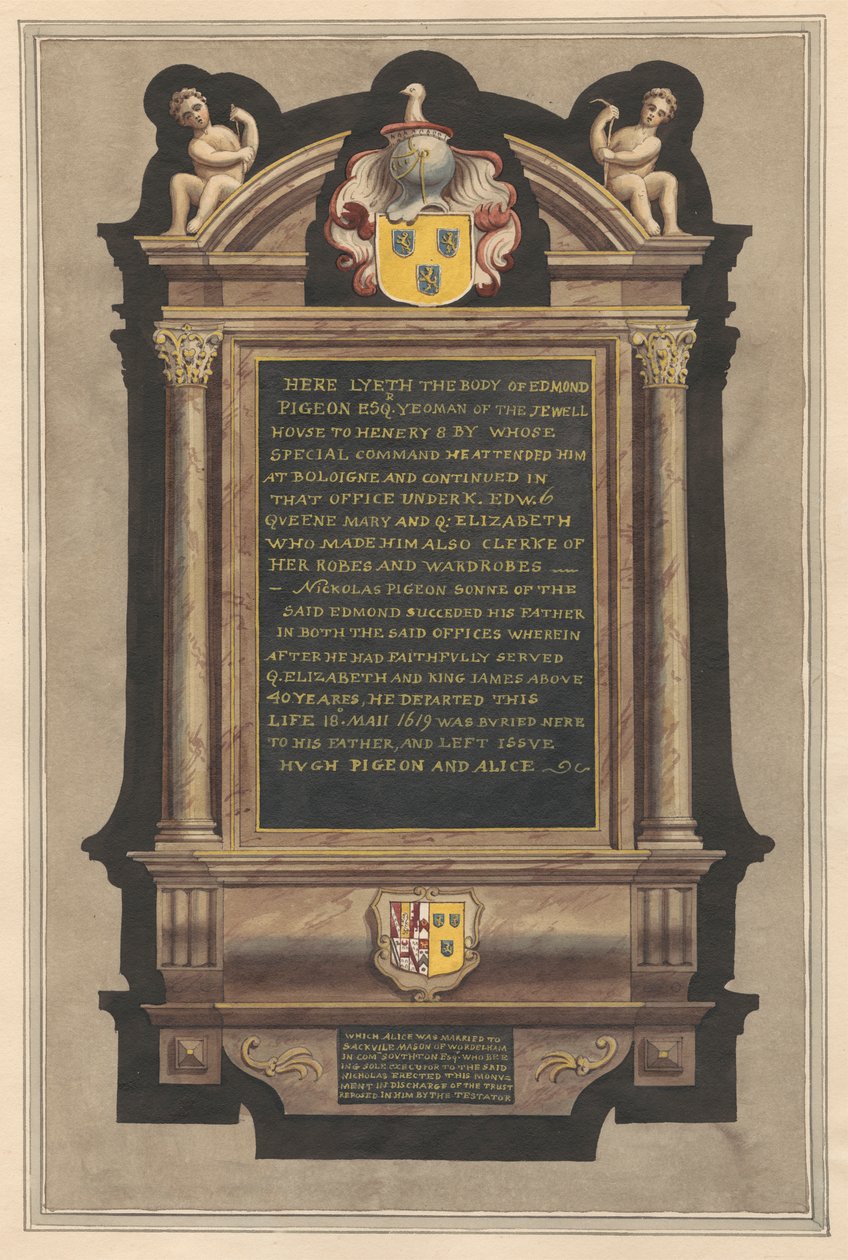 HERE LYETH THE BODY OF EDMOND
PIGEON ESQR. YEOMAN OF THE JEWELL
HOVSE TO HENERY 8 BY WHOSE
SPECIAL COMMAND HE ATTENDED HIM
AT BOLOIGNE AND CONTINUED IN
THAT OFFICE UNDER K. EDW. 6
QVEENE MARY AND Q: ELIZABETH
WHO MADE HIM ALSO CLERKE OF
HER ROBES AND WARDROBES —
— NICKOLAS PIGEON SONNE OF THE
SAID EDMOND SUCCEDED HIS FATHER
IN BOTH THE SAID OFFICES WHEREIN
AFTER HE HAD FAITHFVLLY SERVED
Q. ELIZABETH AND KING JAMES ABOVE
40 YEARES, HE DEPARTED THIS
LIFE 18o. MAII 1619 WAS BVRIED NERE
TO HIS FATHER, AND LEFT ISSVE
HVGH PIGEON AND ALICE
WHICH ALICE WAS MARRIED TO
SACKVILE MASON OF WORDELHAM
IN COM SOVTHTON ESQR. WHO BEE
ING SOLE EXECUTOR TO THE SAID
NICHOLAS ERECTED THIS MONV=
MENT IN DISCHARGE OF THE TRUST
REPOSED IN HIM BY THE TESTATOR